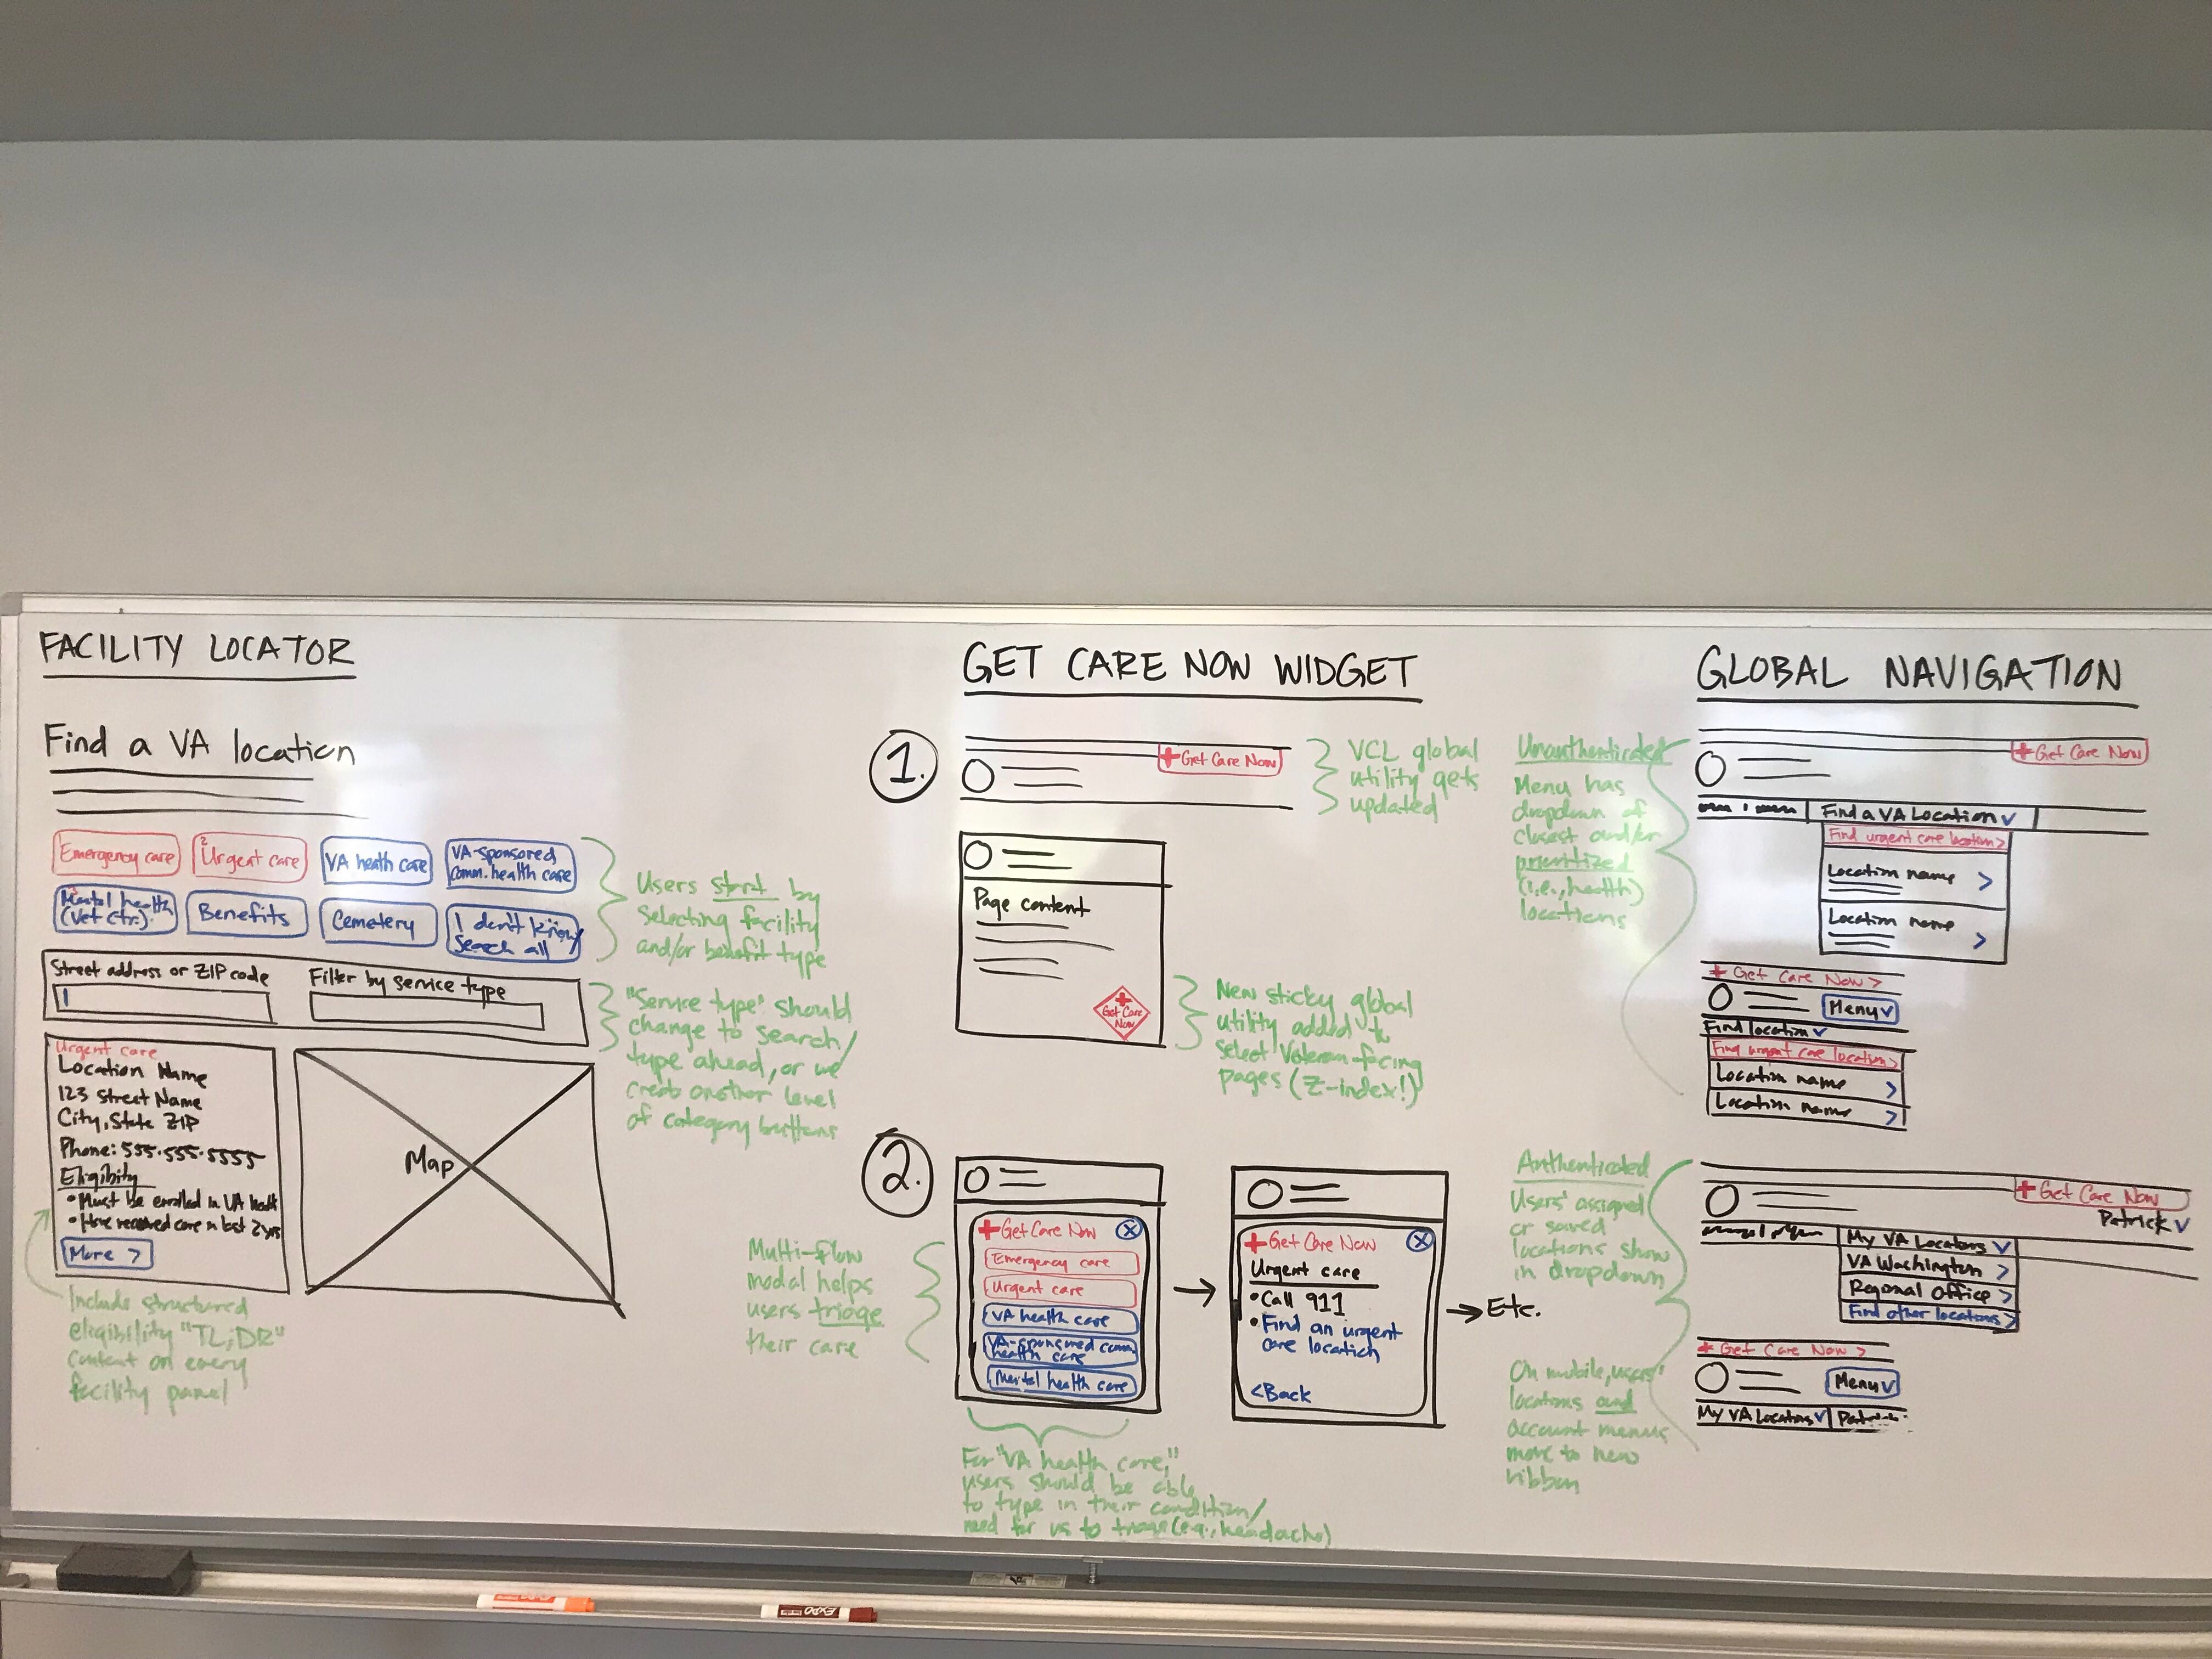 FACILITY LOCATOR
Find a VA location
Emergency care
2 Urgent care
VA health care
VA-sponsored
comm. health care
Mental health
(Vet Ctr.)
Benefits
Cemetery
I don't know/
Search all
Users start by
selecting facility
and/or benefit type
Street address or ZIP code
Filter by service type
"Service type" should
change to search/
type ahead, or we
create another level
of category buttons
Urgent care
Location Name
123 Street Name
City, State ZIP
Phone: 555-555-5555
Eligibity
• Must be enrolled in VA health
• Have received care in last 2 yrs
More >
Map
Include structured
eligibility "TL;DR"
content on every
facility panel
GET CARE NOW WIDGET
1.
+ Get Care Now
VCL global
utility gets
updated
Page content
+
Get Care
Now
New sticky global
utility added to
select Veteran-facing
pages (Z-index!)
2.
Multi-flow
modal helps
users triage
their care
+ Get Care Now
Emergency care
Urgent care
VA health care
VA-sponsored comm.
health care
Mental health care
+ Get Care Now
Urgent care
• Call 911
• Find an urgent
care location
< Back
Etc.
For "VA health care,"
users should be able
to type in their condition/
need for us to triage (e.g., headache)
GLOBAL NAVIGATION
Unauthenticated
Menu has
dropdown of
closest and/or
prioritized
(i.e., health)
locations
+ Get Care Now
Find a VA Location
Find urgent care location >
Location name >
Location name >
+ Get Care Now >
Menu
Find location
Find urgent care location >
Location name >
Location name >
Authenticated
Users' assigned
or saved
locations show
in dropdown
+ Get Care Now
Patrick
My VA Locators
VA Washington >
Regional Office >
Find other locations >
On mobile, users'
locations and
account menus
move to new
ribbon
+ Get Care Now >
Menu
My VA Locators
EXPO